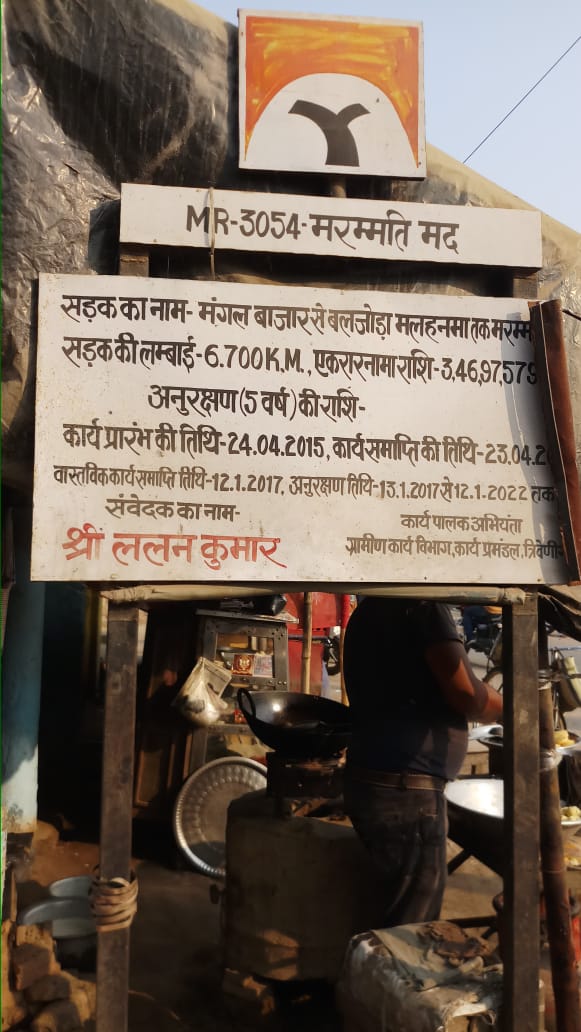 MR-3054-मरम्मति मद
सड़क का नाम- मंगल बाजार से बलजोड़ा मलहनमा तक मरम्म
सड़क की लम्बाई-6.700K.M., एकरारनामा राशि-3,46,97,579
अनुरक्षण(5 वर्ष) की राशि-
कार्य प्रारंभ की तिथि-24.04.2015, कार्य समाप्ति की तिथि-23.04.20
वास्तविक कार्य समाप्ति तिथि-12.1.2017, अनुरक्षण तिथि-13.1.2017 से 12.1.2022 तक
संवेदक का नाम-
श्री ललन कुमार
कार्य पालक अभियंता
ग्रामीण कार्य विभाग,कार्य प्रमंडल, त्रिवेणी